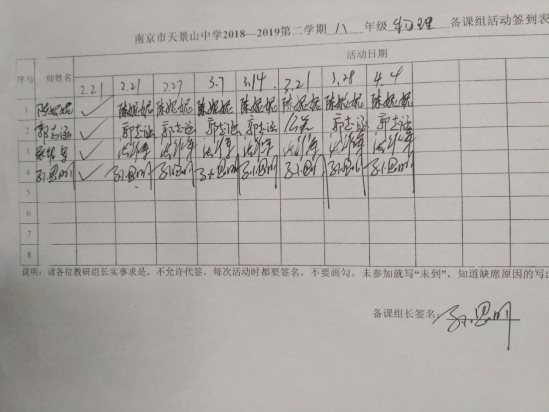 南京市天景山中学2018—2019第二学期 八 年级 物理 备课组活动签到表
活动日期
序号 师姓名
2.21 2.21 2.27 3.7 3.14 3.21 3.28 4.4
1 陈妮妮 ✓ 陈妮妮 陈妮妮 陈妮妮 陈妮妮 陈妮妮 陈妮妮 陈妮妮
2 郭志涵 ✓ 郭志涵 郭志涵 郭志涵 郭志涵 公差 郭志涵 郭志涵
3 ✓
4 孙思明 ✓ 孙思明 孙思明 孙思明 孙思明 孙思明 孙思明 孙思明
5
6
7
8
说明：请各位教研组长实事求是，不允许代签，每次活动时都要签名，不要画勾，未参加就写“未到”，知道缺席原因的写出
备课组长签名: 孙思明